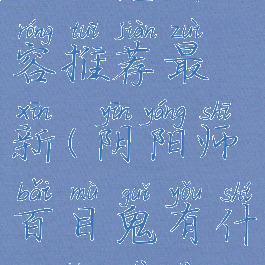 róng tuī jiàn zuì
容推荐最
xīn yīn yáng shī
新(阴阳师
bǎi mù guǐ yǒu shí
百目鬼有什